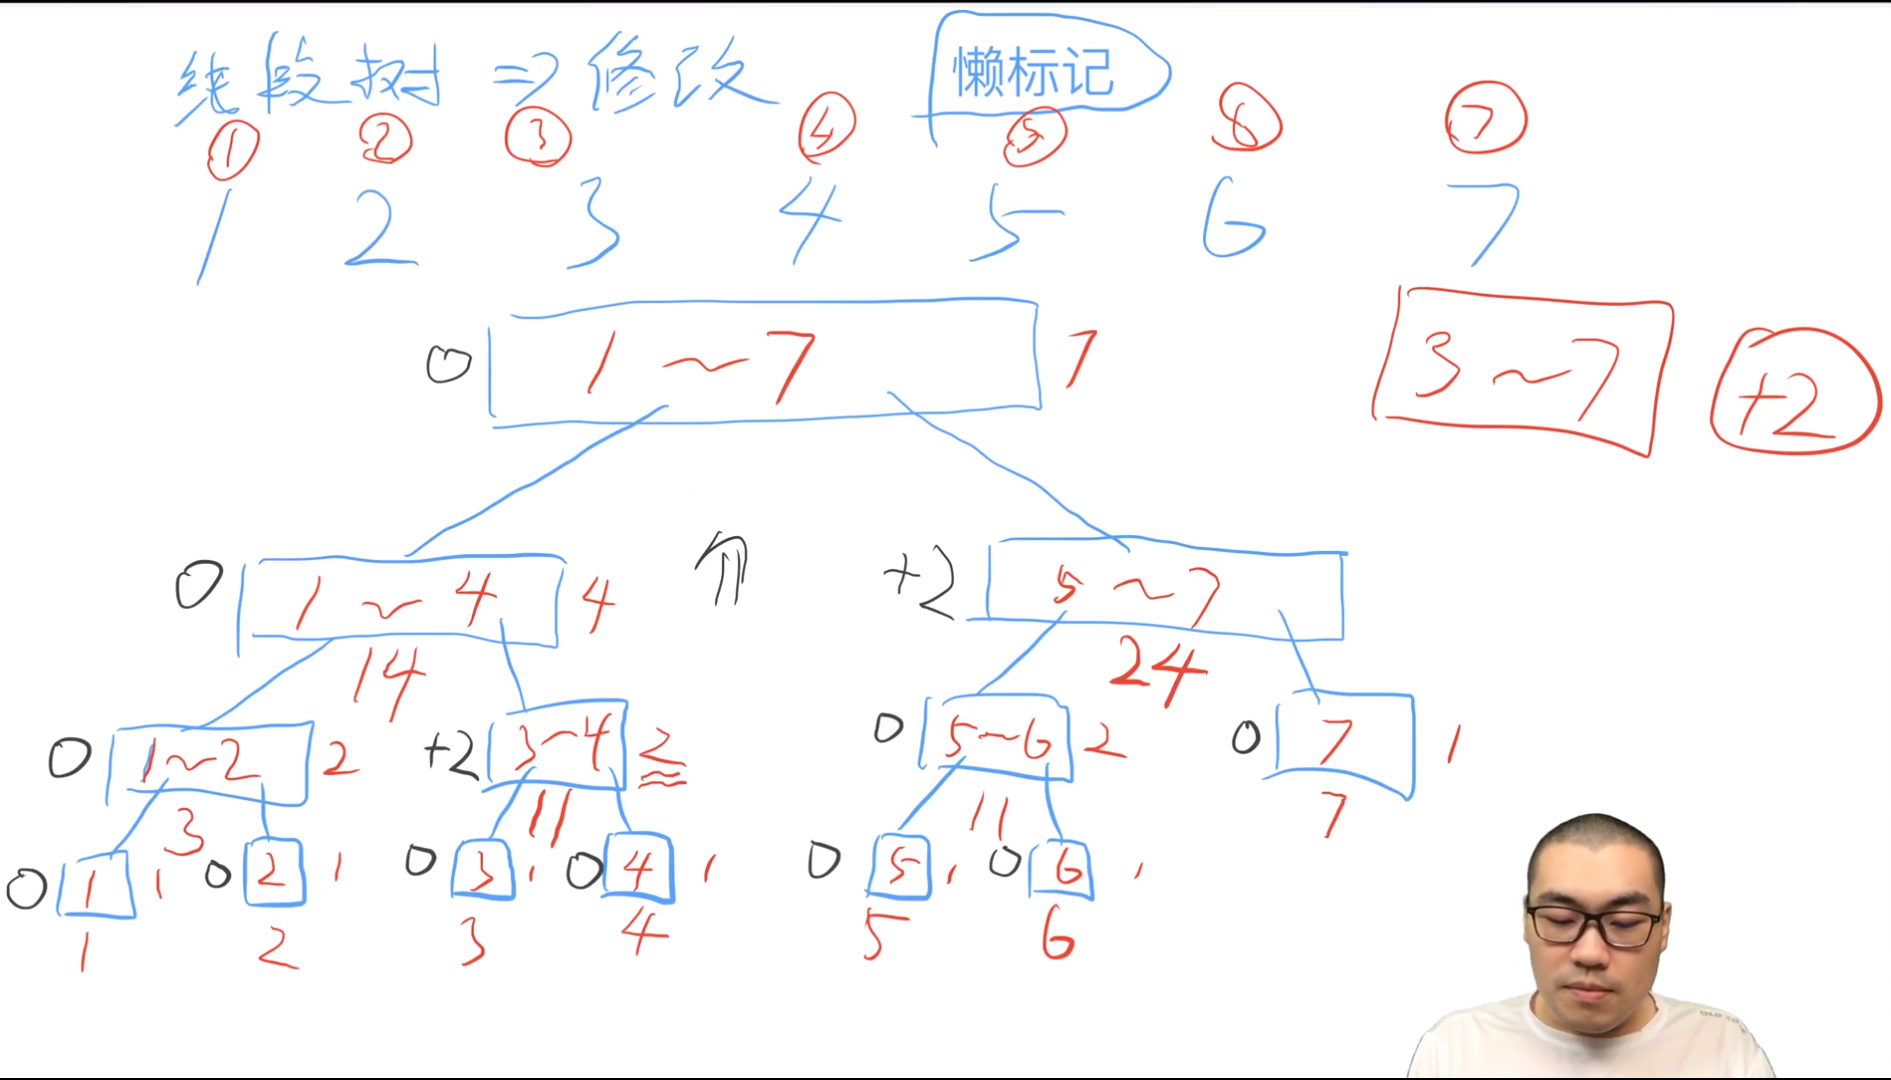 线段树 => 修改 懒标记
① ② ③ ④ ⑤ ⑥ ⑦
1 2 3 4 5 6 7
0 1~7 7 3~7 +2
0 1~4 4 ⇑ +2 5~7
14 24
0 1~2 2 +2 3~4 2 0 5~6 2 0 7 1
3 11 11 7
0 1 1 0 2 1 0 3 1 0 4 1 0 5 1 0 6 1
1 2 3 4 5 6